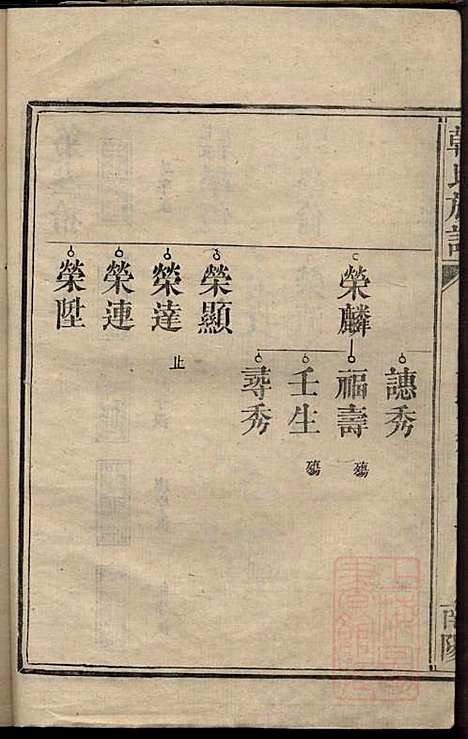 韓氏族譜
南陽
榮麟
榮顯
榮達
止
榮連
榮陞
譓秀
福壽
殤
壬生
殤
尋秀